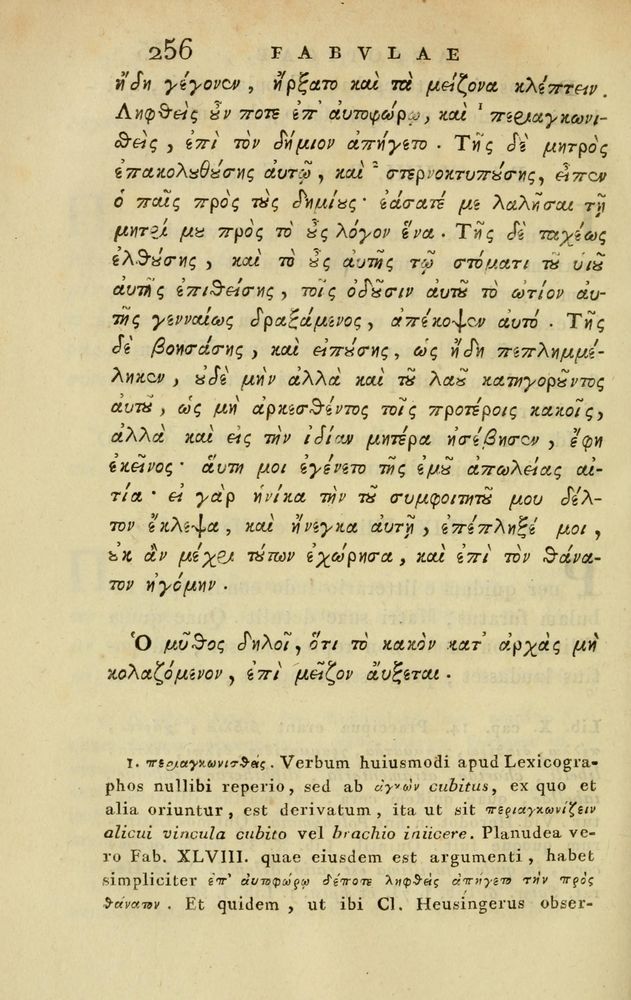 256 FABVLAE
ἤδη γέγονεν, ἤρξατο καὶ τὰ μείζονα κλέπτειν.
Ληφθεὶς ȣ̓ν ποτε ἐπ' ἀυτοφώρῳ, καὶ ¹ περιαγκωνι-
θεὶς, ἐπὶ τὸν δήμιον ἀπήγετο. Τῆς δὲ μητρὸς
ἐπακολȣθȣ́σης ἀυτῷ, καὶ ² στερνοκτυπȣ́σης, εἶπεν
ὁ παῖς πρὸς τȣ̀ς δημίȣς· ἐάσατέ με λαλῆσαι τῇ
μητρί μȣ πρὸς τὸ ȣ̓ς λόγον ἕνα. Τῆς δὲ ταχέως
ἐλθȣ́σης, καὶ τὸ ȣ̓ς ἀυτῆς τῷ στόματι τȣ͂ υἱȣ͂
ἀυτῆς ἐπιθείσης, τοῖς ὀδȣ͂σιν ἀυτȣ͂ τὸ ὠτίον ἀυ-
τῆς γενναίως δραξάμενος, ἀπέκοψεν ἀυτό. Τῆς
δὲ βοησάσης, καὶ εἰπȣ́σης, ὡς ἤδη πεπλημμέ-
ληκεν, ȣ̓δὲ μὴν ἀλλὰ καὶ τȣ͂ λαȣ͂ κατηγορȣ͂ντος
ἀυτȣ͂, ὡς μὴ ἀρκεσθέντος τοῖς προτέροις κακοῖς,
ἀλλὰ καὶ εἰς τὴν ἰδίαν μητέρα ἠσέβησεν, ἔφη
ἐκεῖνος· ἅυτη μοι ἐγένετο τῆς ἐμȣ͂ ἀπωλείας αἰ-
τία· εἰ γὰρ ἡνίκα τὴν τȣ͂ συμφοιτητȣ͂ μου δέλ-
τον ἔκλεψα, καὶ ἤνεγκα ἀυτῇ, ἐπέπληξέ μοι,
ȣ̓κ ἂν μέχρι τȣ́των ἐχώρησα, καὶ ἐπὶ τὸν θάνα-
τον ἠγόμην.
Ὁ μῦθος δηλοῖ, ὅτι τὸ κακὸν κατ' ἀρχὰς μὴ
κολαζόμενον, ἐπὶ μεῖζον ἄυξεται.
1. περιαγκωνισθεὶς. Verbum huiusmodi apud Lexicogra-
phos nullibi reperio, sed ab ἀγκὼν cubitus, ex quo et
alia oriuntur, est derivatum, ita ut sit περιαγκωνίζειν
alicui vincula cubito vel brachio iniicere. Planudea ve-
ro Fab. XLVIII. quae eiusdem est argumenti, habet
simpliciter ἐπ' ἀυτοφώρῳ δέποτε ληφθεὶς ἀπήγετο τὴν πρὸς
θάνατον. Et quidem, ut ibi Cl. Heusingerus obser-